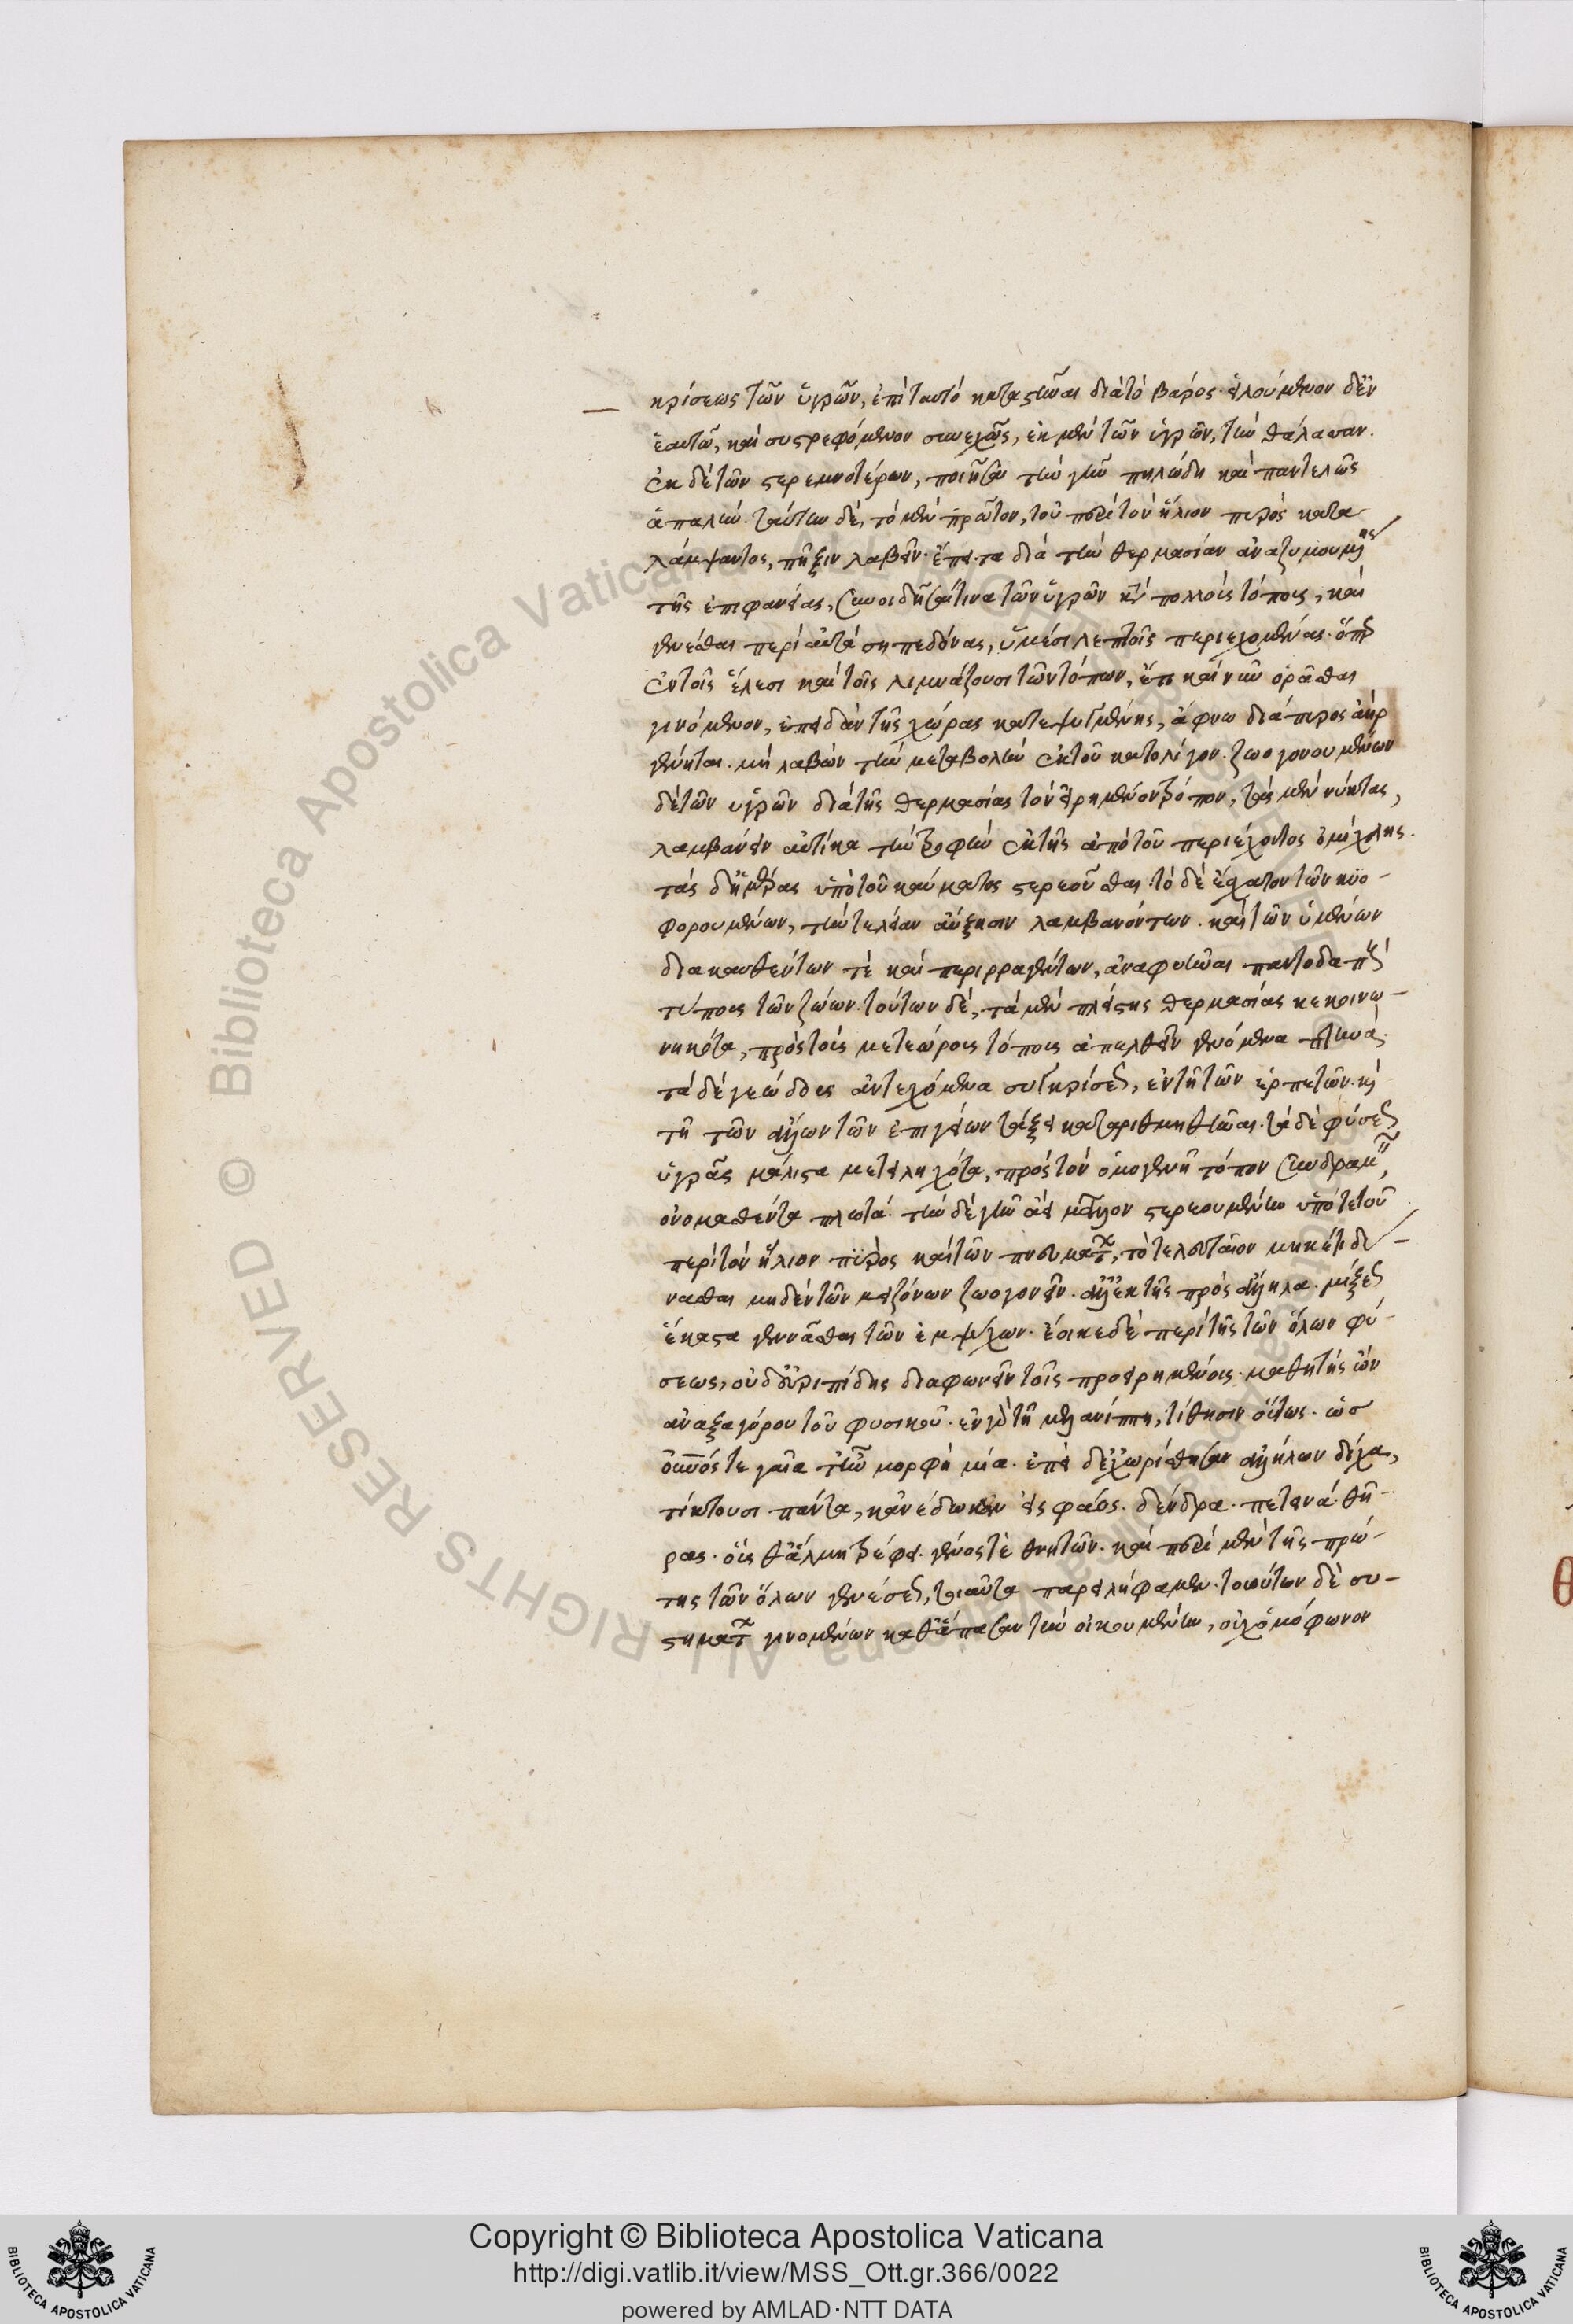 κρίσεως τῶν ὑγρῶν, ἐπὶ ταυτὸ καταστῆναι διὰ τὸ βάρος. εἰλούμενον δ' ἐν
ἑαυτῶ, καὶ συστρεφόμενον συνεχῶς, ἐκ μὲν τῶν ὑγρῶν, τὴν θάλασσαν.
ἐκ δὲ τῶν στερεμνοτέρων, ποιῆσαι τὴν γῆν πηλώδη καὶ παντελῶς
ἁπαλήν. ταύτην δὲ, τὸ μὲν πρῶτον, τοῦ περὶ τὸν ἥλιον πυρὸς κατα
λάμψαντος, πῆξιν λαβεῖν. ἔπειτα διὰ τὴν θερμασίαν ἀναζυμουμένης
τῆς ἐπιφανείας, συνοιδῆσαί τινα τῶν ὑγρῶν κατὰ πολλοὺς τόπους, καὶ
γενέσθαι περὶ αὐτὰ σηπεδόνας, ὑμέσι λεπτοῖς περιεχομένας. ὅπερ
ἐν τοῖς ἕλεσι καὶ τοῖς λιμνάζουσι τῶν τόπων, ἔτι καὶ νῦν ὁρᾶσθαι
γινόμενον, ἐπειδὰν τῆς χώρας κατεψυγμένης, ἄφνω διάπυρος ἀὴρ
γένηται. μὴ λαβὼν τὴν μεταβολὴν ἐκ τοῦ κατολίγον. ζωογονουμένων
δὲ τῶν ὑγρῶν διὰ τῆς θερμασίας τὸν εἰρημένον τρόπον, τὰς μὲν νύκτας,
λαμβάνειν αὐτίκα τὴν τροφὴν ἐκ τῆς ἀπὸ τοῦ περιέχοντος ὁμίχλης.
τὰς δ' ἡμέρας ὑπὸ τοῦ καύματος στερεοῦσθαι. τὸ δὲ ἔσχατον τῶν κυο-
φορουμένων, τὴν τελείαν αὔξησιν λαμβανόντων. καὶ τῶν ὑμένων
διακαυθέντων τὲ καὶ περιρραγέντων, ἀναφυῆναι παντοδαποὺς
τύπους τῶν ζώων. τούτων δὲ, τὰ μὲν πλείστης θερμασίας κεκοινω-
νηκότα, πρὸς τοὺς μετεώρους τόπους ἀπελθεῖν γενόμενα πτηνά.
τὰ δὲ γεώδους ἀντεχόμενα συγκρίσεως, ἐν τῆ τῶν ἑρπετῶν. καὶ
τῆ τῶν ἄλλων τῶν ἐπιγείων τάξει καταριθμηθῆναι. τὰ δὲ φύσεως
ὑγρᾶς μάλιστα μετειληχότα, πρὸς τὸν ὁμογενῆ τόπον συνδραμεῖν,
ὀνομασθέντα πλωτά. τὴν δὲ γῆν ἀεὶ μᾶλλον στερεουμένην ὑπό τε τοῦ
περὶ τὸν ἥλιον πυρὸς καὶ τῶν πνευμάτων, τὸ τελευταῖον μηκέτι δύ-
νασθαι μηδὲν τῶν μειζόνων ζωογονεῖν. ἀλλ' ἐκ τῆς πρὸς ἄλληλα. μίξεως
ἕκαστα γεννᾶσθαι τῶν ἐμψύχων. ἔοικε δὲ περὶ τῆς τῶν ὅλων φύ-
σεως, οὐδ' εὐριπίδης διαφωνεῖν τοῖς προειρημένοις. μαθητὴς ὢν
ἀναξαγόρου τοῦ φυσικοῦ. ἐν γὰρ τῆ μελανίππη, τίθησιν οὕτως. ὡσ
οὐρανός τε γαῖα τ' ἦν μορφὴ μία. ἐπεὶ δ' ἐχωρίσθησαν ἀλλήλων δίχα,
τίκτουσι πάντα, κἀνέδωκαν εἰς φάος. δένδρα. πετεινά. θῆ-
ρας. οὓς θ' ἅλμη τρέφει. γένος τὲ θνητῶν. καὶ περὶ μὲν τῆς πρώ-
της τῶν ὅλων γενέσεως, τοιαῦτα παρειλήφαμεν. τοιούτων δὲ συ-
στημάτων γινομένων καθ' ἅπασαν τὴν οἰκουμένην, οὐχ ὁμόφωνον
Copyright © Biblioteca Apostolica Vaticana
http://digi.vatlib.it/view/MSS_Ott.gr.366/0022
powered by AMLAD·NTT DATA